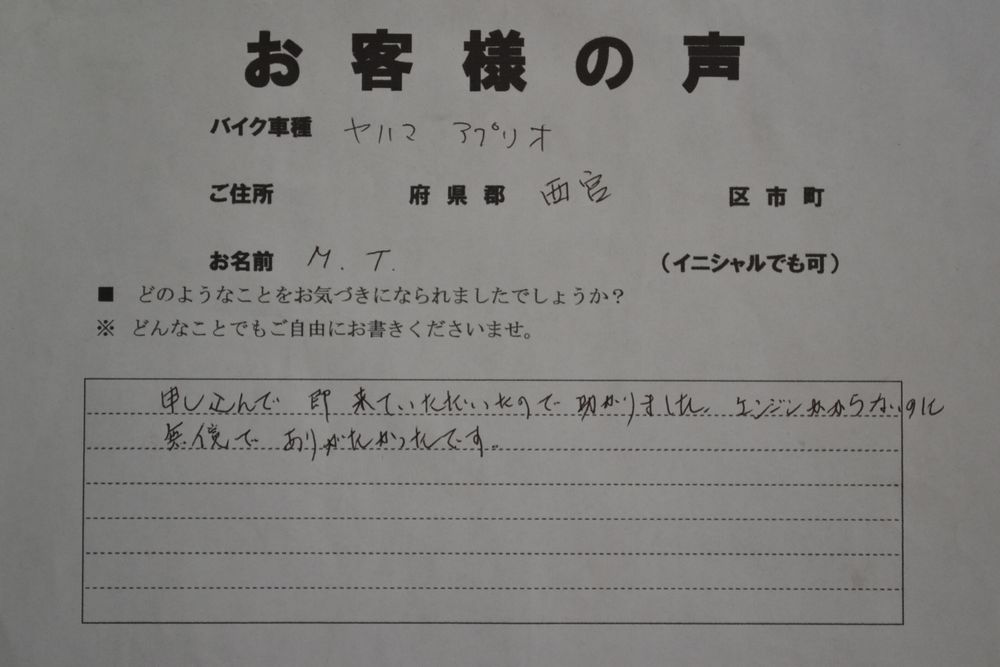 お客様の声
バイク車種 ヤハマ アプリオ
ご住所 府県郡 西宮 区市町
お名前 M. T. (イニシャルでも可)
■ どのようなことをお気づきになられましたでしょうか?
※ どんなことでもご自由にお書きくださいませ。
申し込んで 即 来ていただいたので 助かりました。エンジンかからないのに
無償で ありがたかったです。